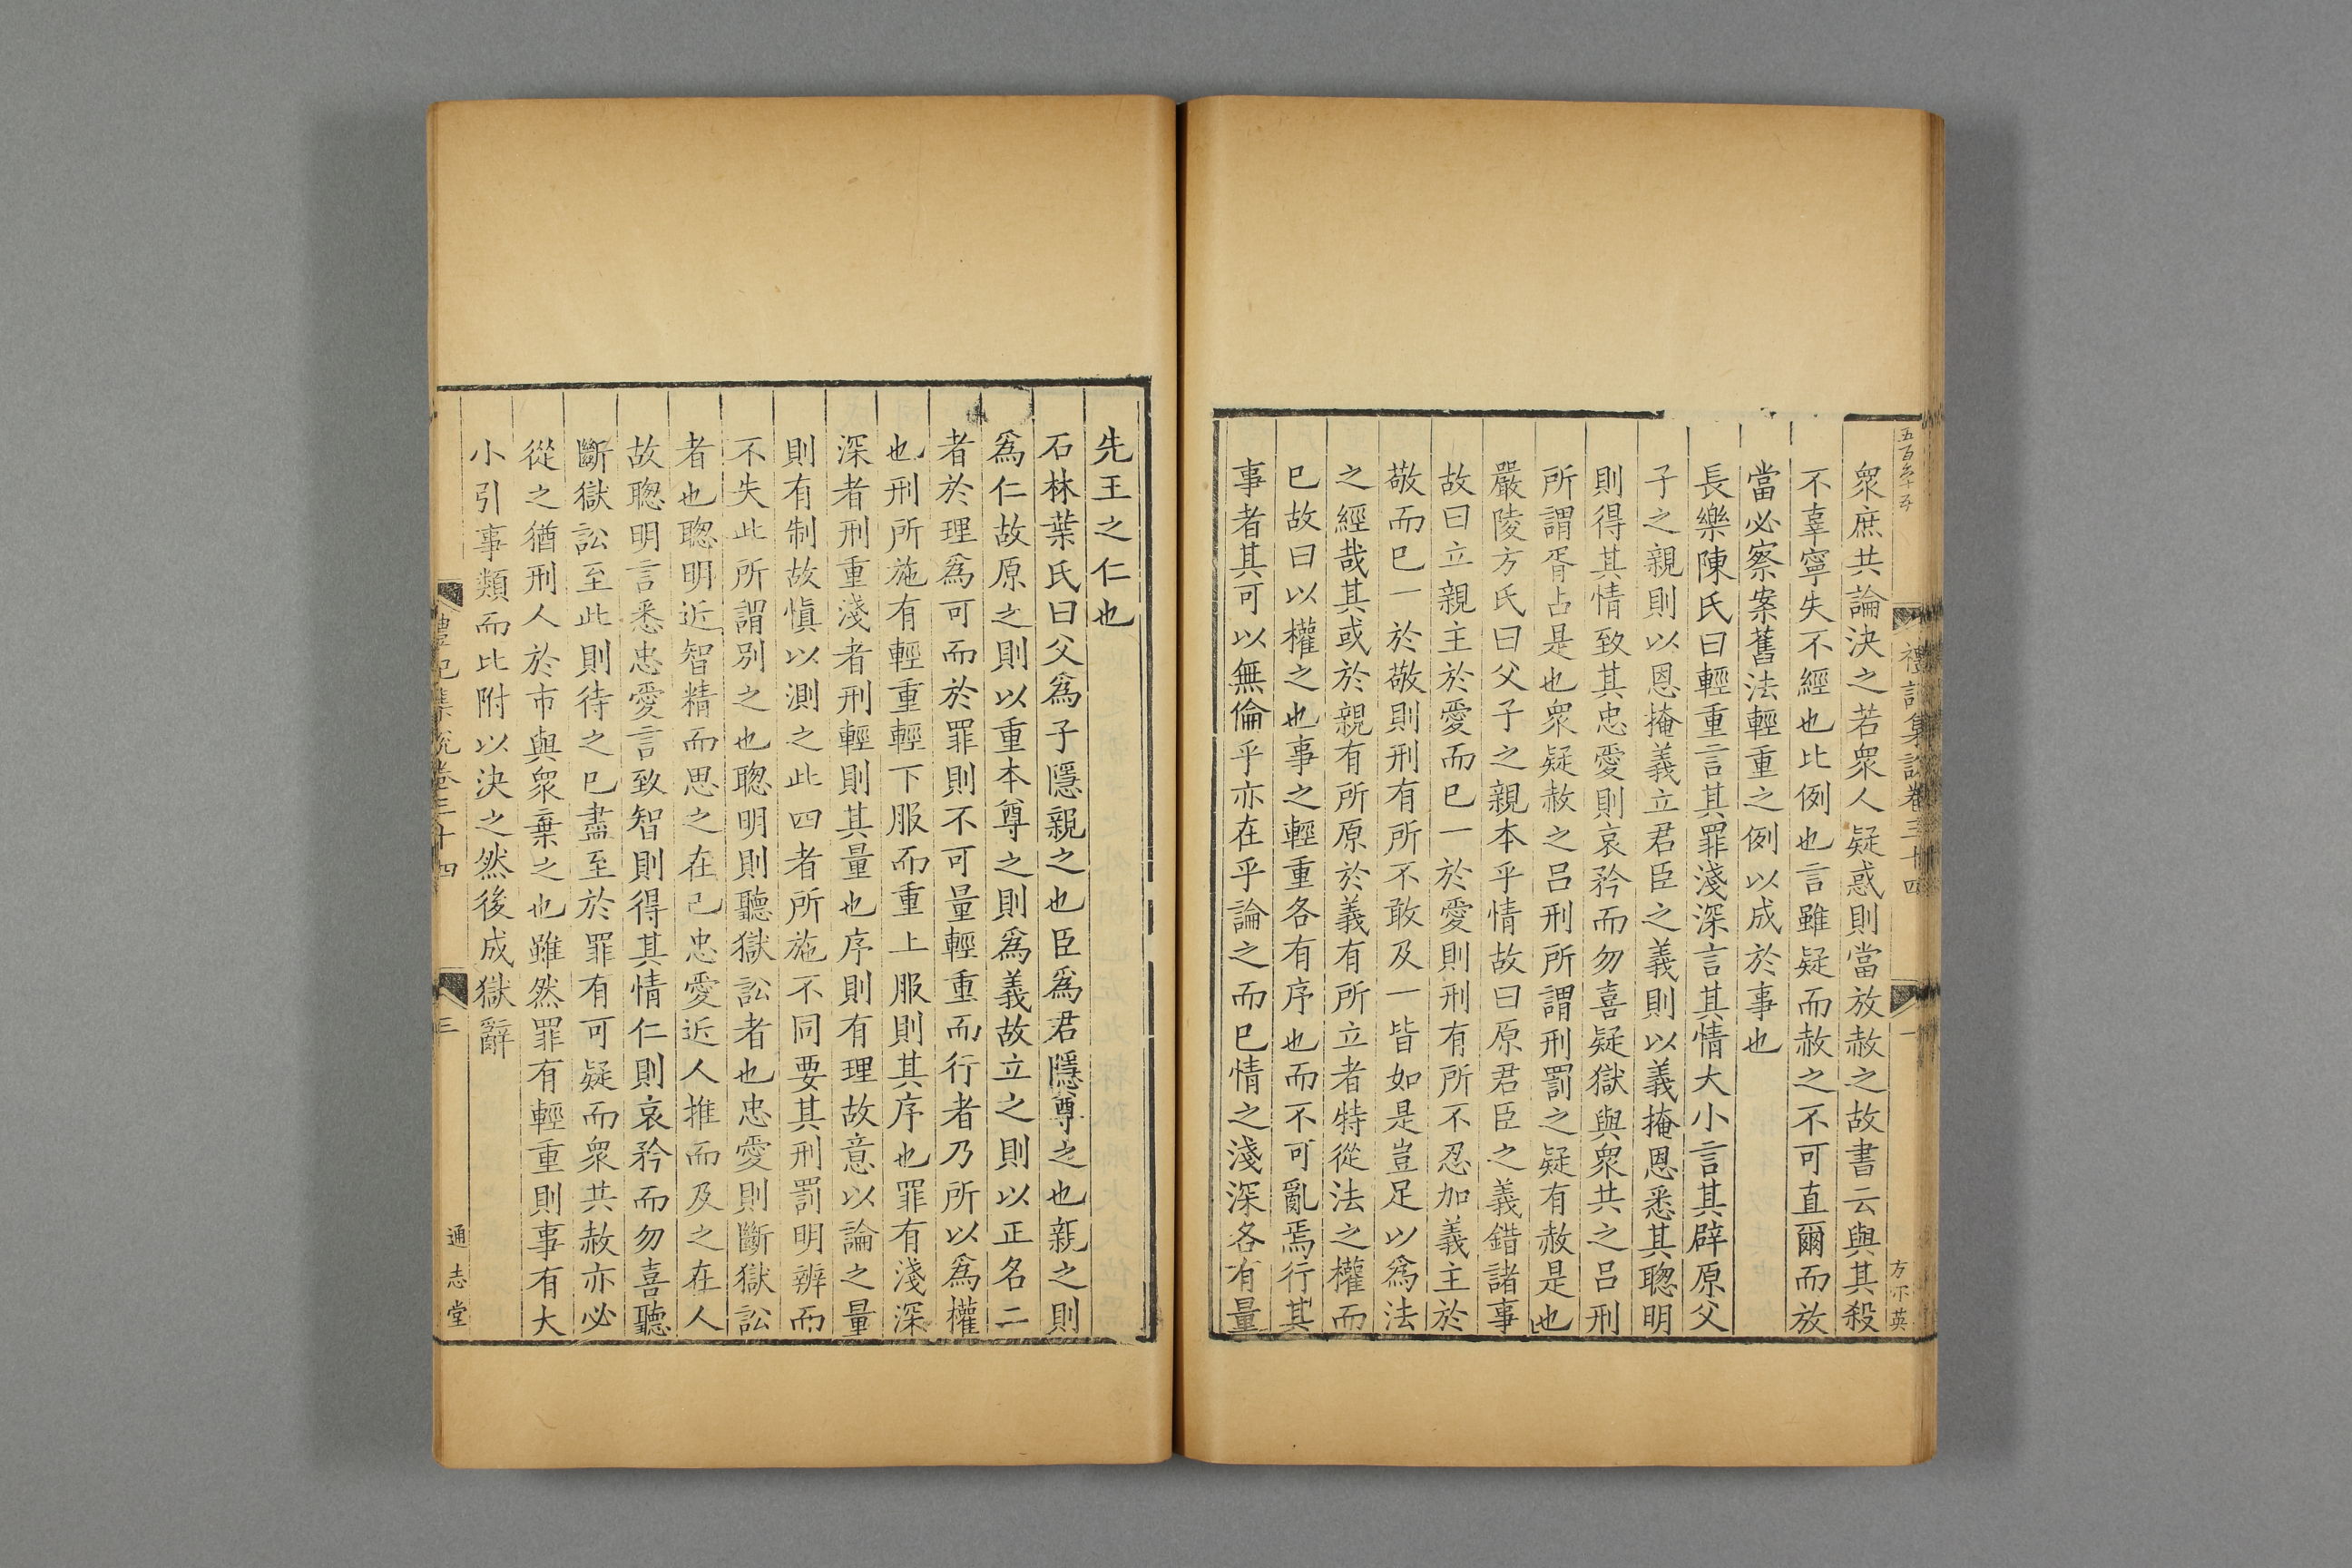 五百六十五
禮記集說卷三十四
一
方不英
衆庶共論決之若衆人疑惑則當放赦之故書云與其殺
不辜寧失不經也比例也言雖疑而赦之不可直爾而放
當必察案舊法輕重之例以成於事也
長樂陳氏曰輕重言其罪淺深言其情大小言其辟原父
子之親則以恩掩義立君臣之義則以義掩恩悉其聰明
則得其情致其忠愛則哀矜而勿喜疑獄與衆共之呂刑
所謂胥占是也衆疑赦之呂刑所謂刑罰之疑有赦是也
嚴陵方氏曰父子之親本乎情故曰原君臣之義錯諸事
故曰立親主於愛而已一於愛則刑有所不忍加義主於
敬而已一於敬則刑有所不敢及一皆如是豈足以爲法
之經哉其或於親有所原於義有所立者特從法之權而
已故曰以權之也事之輕重各有序也而不可亂焉行其
事者其可以無倫乎亦在乎論之而已情之淺深各有量
先王之仁也
石林葉氏曰父爲子隱親之也臣爲君隱尊之也親之則
爲仁故原之則以重本尊之則爲義故立之則以正名二
者於理爲可而於罪則不可量輕重而行者乃所以爲權
也刑所施有輕重輕下服而重上服則其序也罪有淺深
深者刑重淺者刑輕則其量也序則有理故意以論之量
則有制故愼以測之此四者所施不同要其刑罰明辨而
不失此所謂別之也聰明則聽獄訟者也忠愛則斷獄訟
者也聰明近智精而思之在己忠愛近人推而及之在人
故聰明言悉忠愛言致智則得其情仁則哀矜而勿喜聽
斷獄訟至此則待之已盡至於罪有可疑而衆共赦亦必
從之猶刑人於市與衆棄之也雖然罪有輕重則事有大
小引事類而比附以決之然後成獄辭
禮記集說卷三十四
三
通志堂